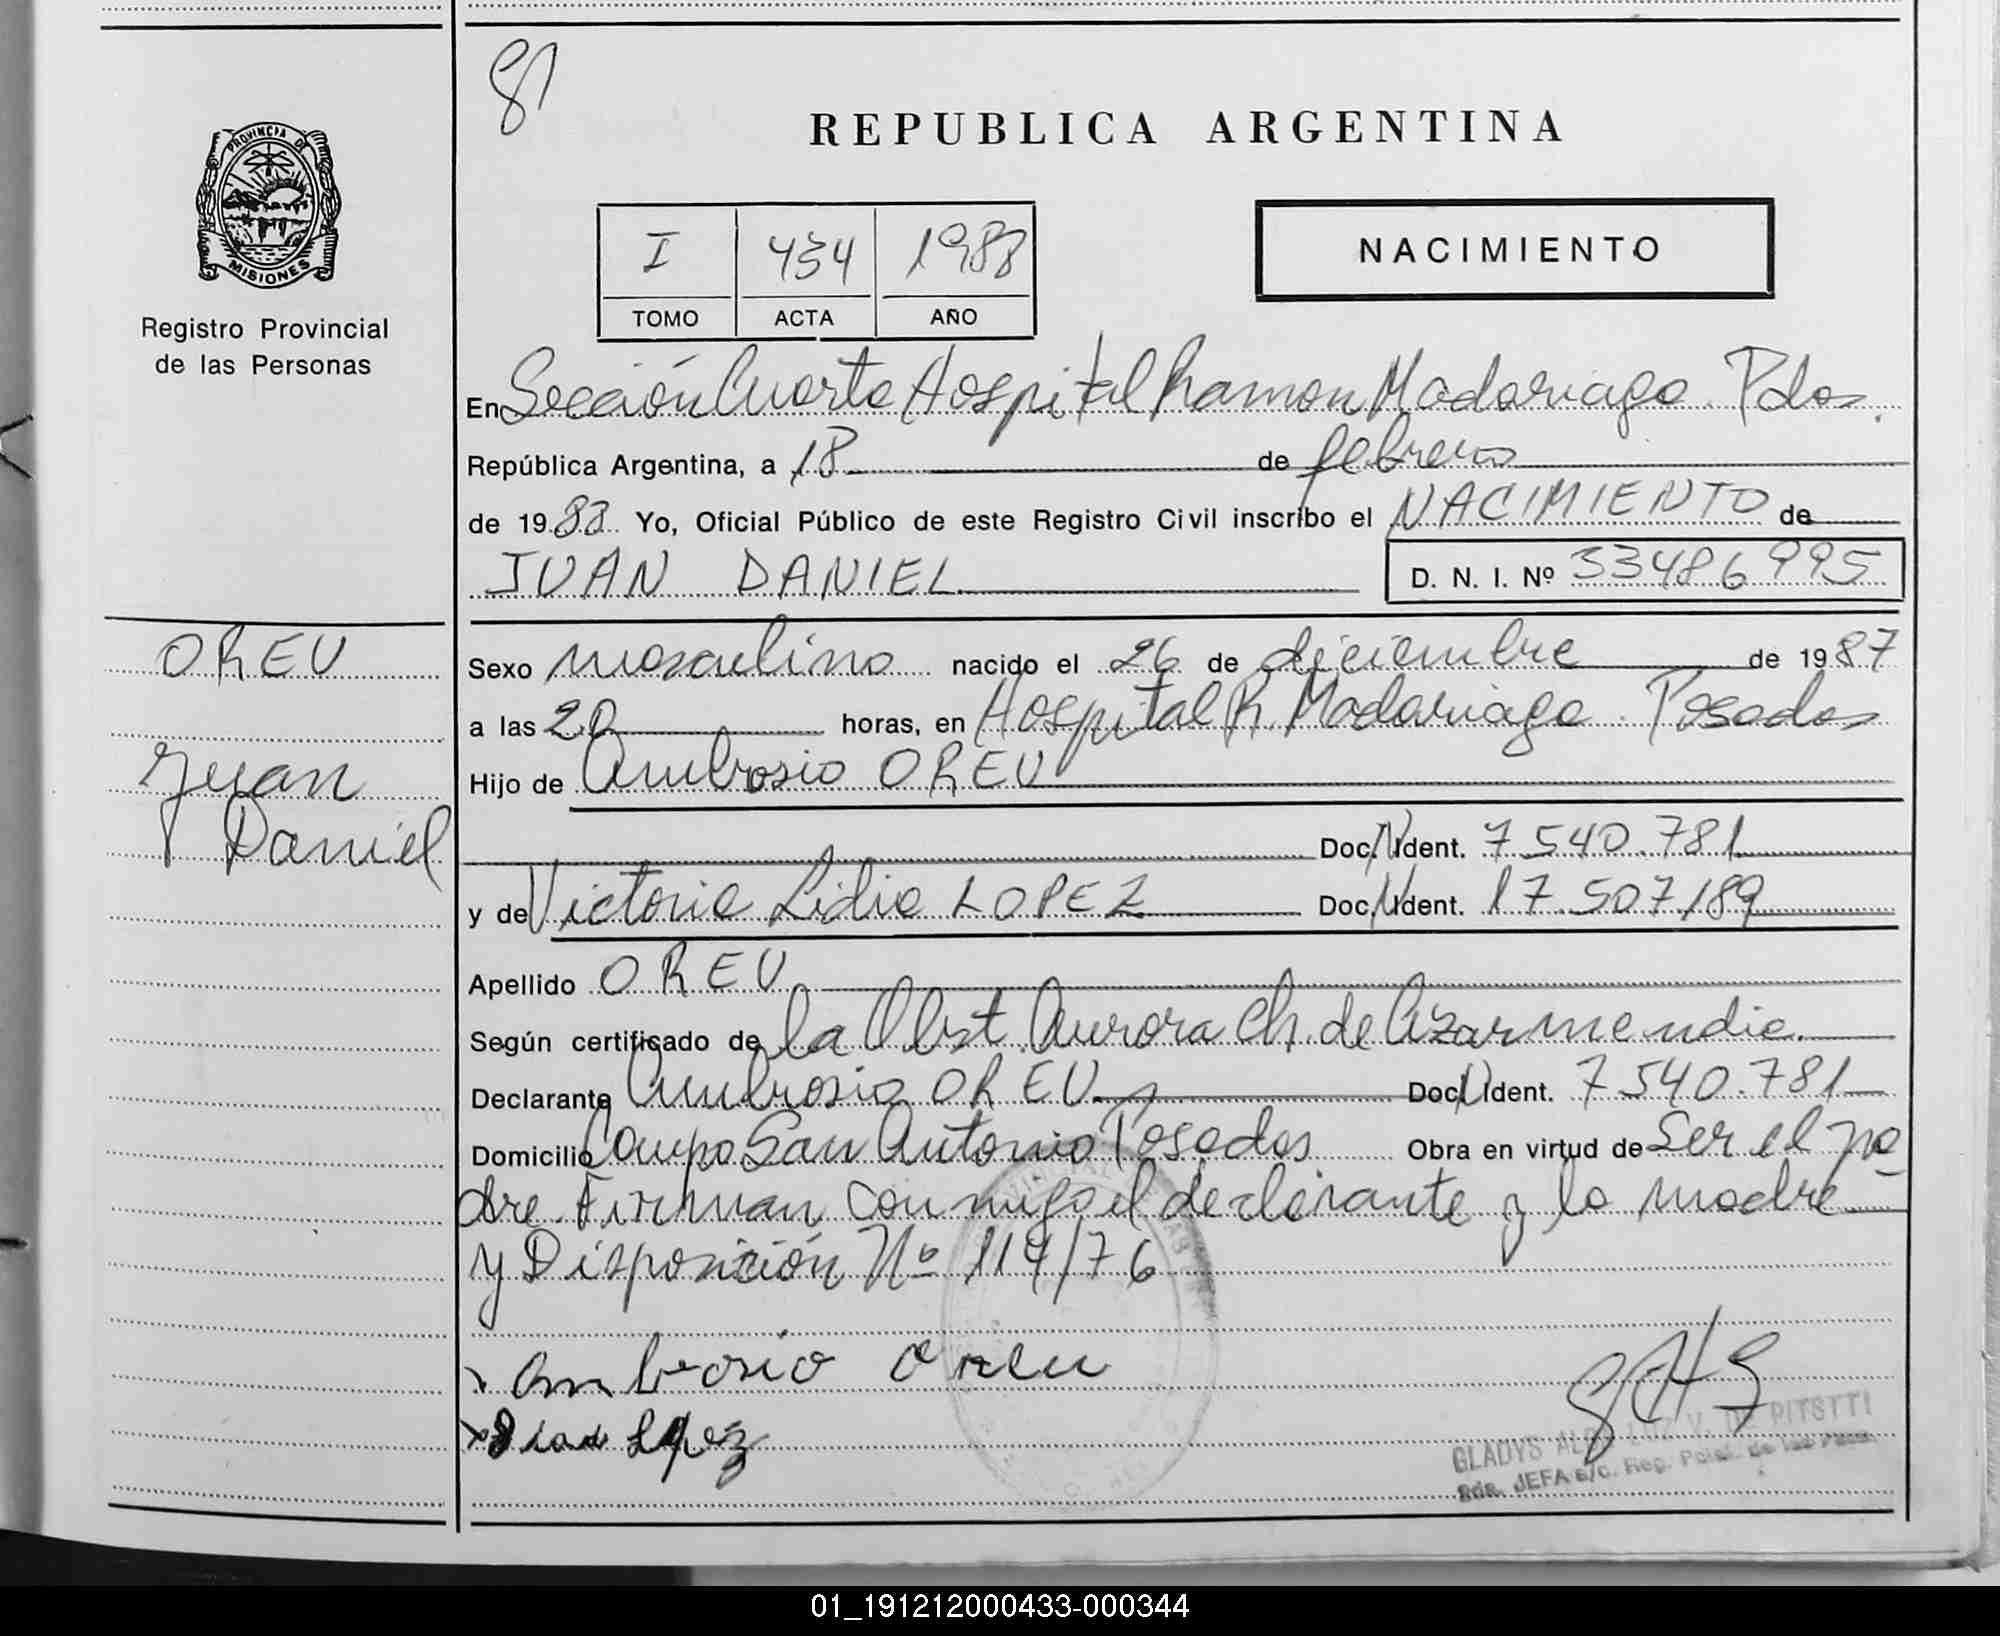 81
REPUBLICA ARGENTINA
PROVINCIA DE
MISIONES
Registro Provincial
de las Personas
I 434 1988
TOMO ACTA AÑO
NACIMIENTO
En Sección Cuarta Hospital Ramon Madariaga. Pdas.
República Argentina, a 18 de febrero
de 1988 Yo, Oficial Público de este Registro Civil inscribo el NACIMIENTO de
JUAN DANIEL D. N. I. Nº 33486995
OREU
Juan
Daniel
Sexo masculino nacido el 26 de diciembre de 1987
a las 20 horas, en Hospital R. Madariaga. Posadas
Hijo de Ambrosio OREU
Doc. N. Ident. 7540.781
y de Victoria Lidia LOPEZ Doc. N. Ident. 17.507.189
Apellido OREU
Según certificado de la Obst. Aurora Ch. de Azarmendia.
Declarante Ambrosio OREU Doc. N. Ident. 7540.781
Domicilio Campo San Antonio Posadas Obra en virtud de Ser el pa
dre. Firman conmigo el declarante y la madre
y Disposición Nº 114/76
Ambrosio Oreu
Lopez
GLADYS V. DE PITSTTI
JEFA a/c. Reg. Pcial. de las Pers.
01_191212000433-000344